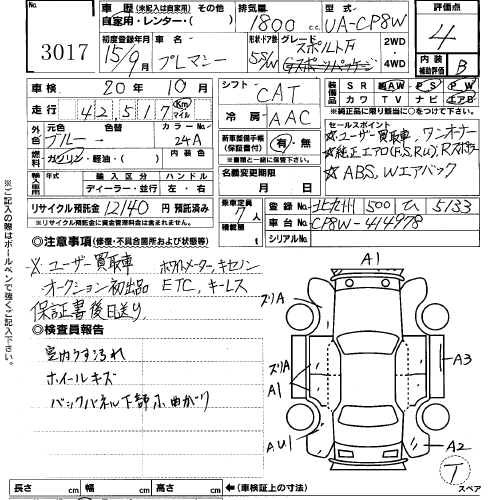 出品番号
3017
車歴 (未記入は自家用) その他
自家用・レンター・( )
排気量 1800 c.c.
型式 UA-CP8W
評価点 4
内装補助評価 B
初度登録年月 15/9月
車名 プレマシー
形状・ドア数 5S/W
グレード スポルト万
Gスポーツパッケージ
2WD・4WD
車検 20年 10月
シフト CAT
走行 42,517 Km マイル
冷房 AAC
装備品 SR 純AW PS PW
カワ TV ナビ エアB
※純正品に限り主催店が引渡しを保証
外色 元色 ブルー 色替 カラーNo 24A
セールスポイント
☆ユーザー買取車 ワンオーナー
☆純正エアロ(F,S,Ru), Rスポイラー
☆ABS, Wエアバック
燃料 ガソリン・軽油・( ) 内装色
新車整備手帳(保証書付) 有・無
※後日送付も一緒に保管して下さい。
輸入車用 輸入区分 ハンドル
ディーラー・並行 左・右
名義変更期限 月 日
リサイクル預託金 12140 円 預託済み
※リサイクル預託金に資金管理料金は含まれません。
乗車定員 7人
積載量 t
登録 北九州 500 ひ 5133
車台 CP8W-414978
シリアルNo
◎注意事項(修復・不具合箇所および状態等)
☆ユーザー買取車 ホワイトメーター, キセノン
オークション初出品 ETC, キーレス
保証書後日送り.
◎検査員報告
室内うすよごれ
ホイールキズ
バックパネル下部小曲がり
※ご記入の際はボールペンで強くご記入下さい。
A1
ズリA
ズリA
A1
A3
A,U1
A2
T
スペア
長さ cm 幅 cm 高さ cm ←(車検証上の寸法)